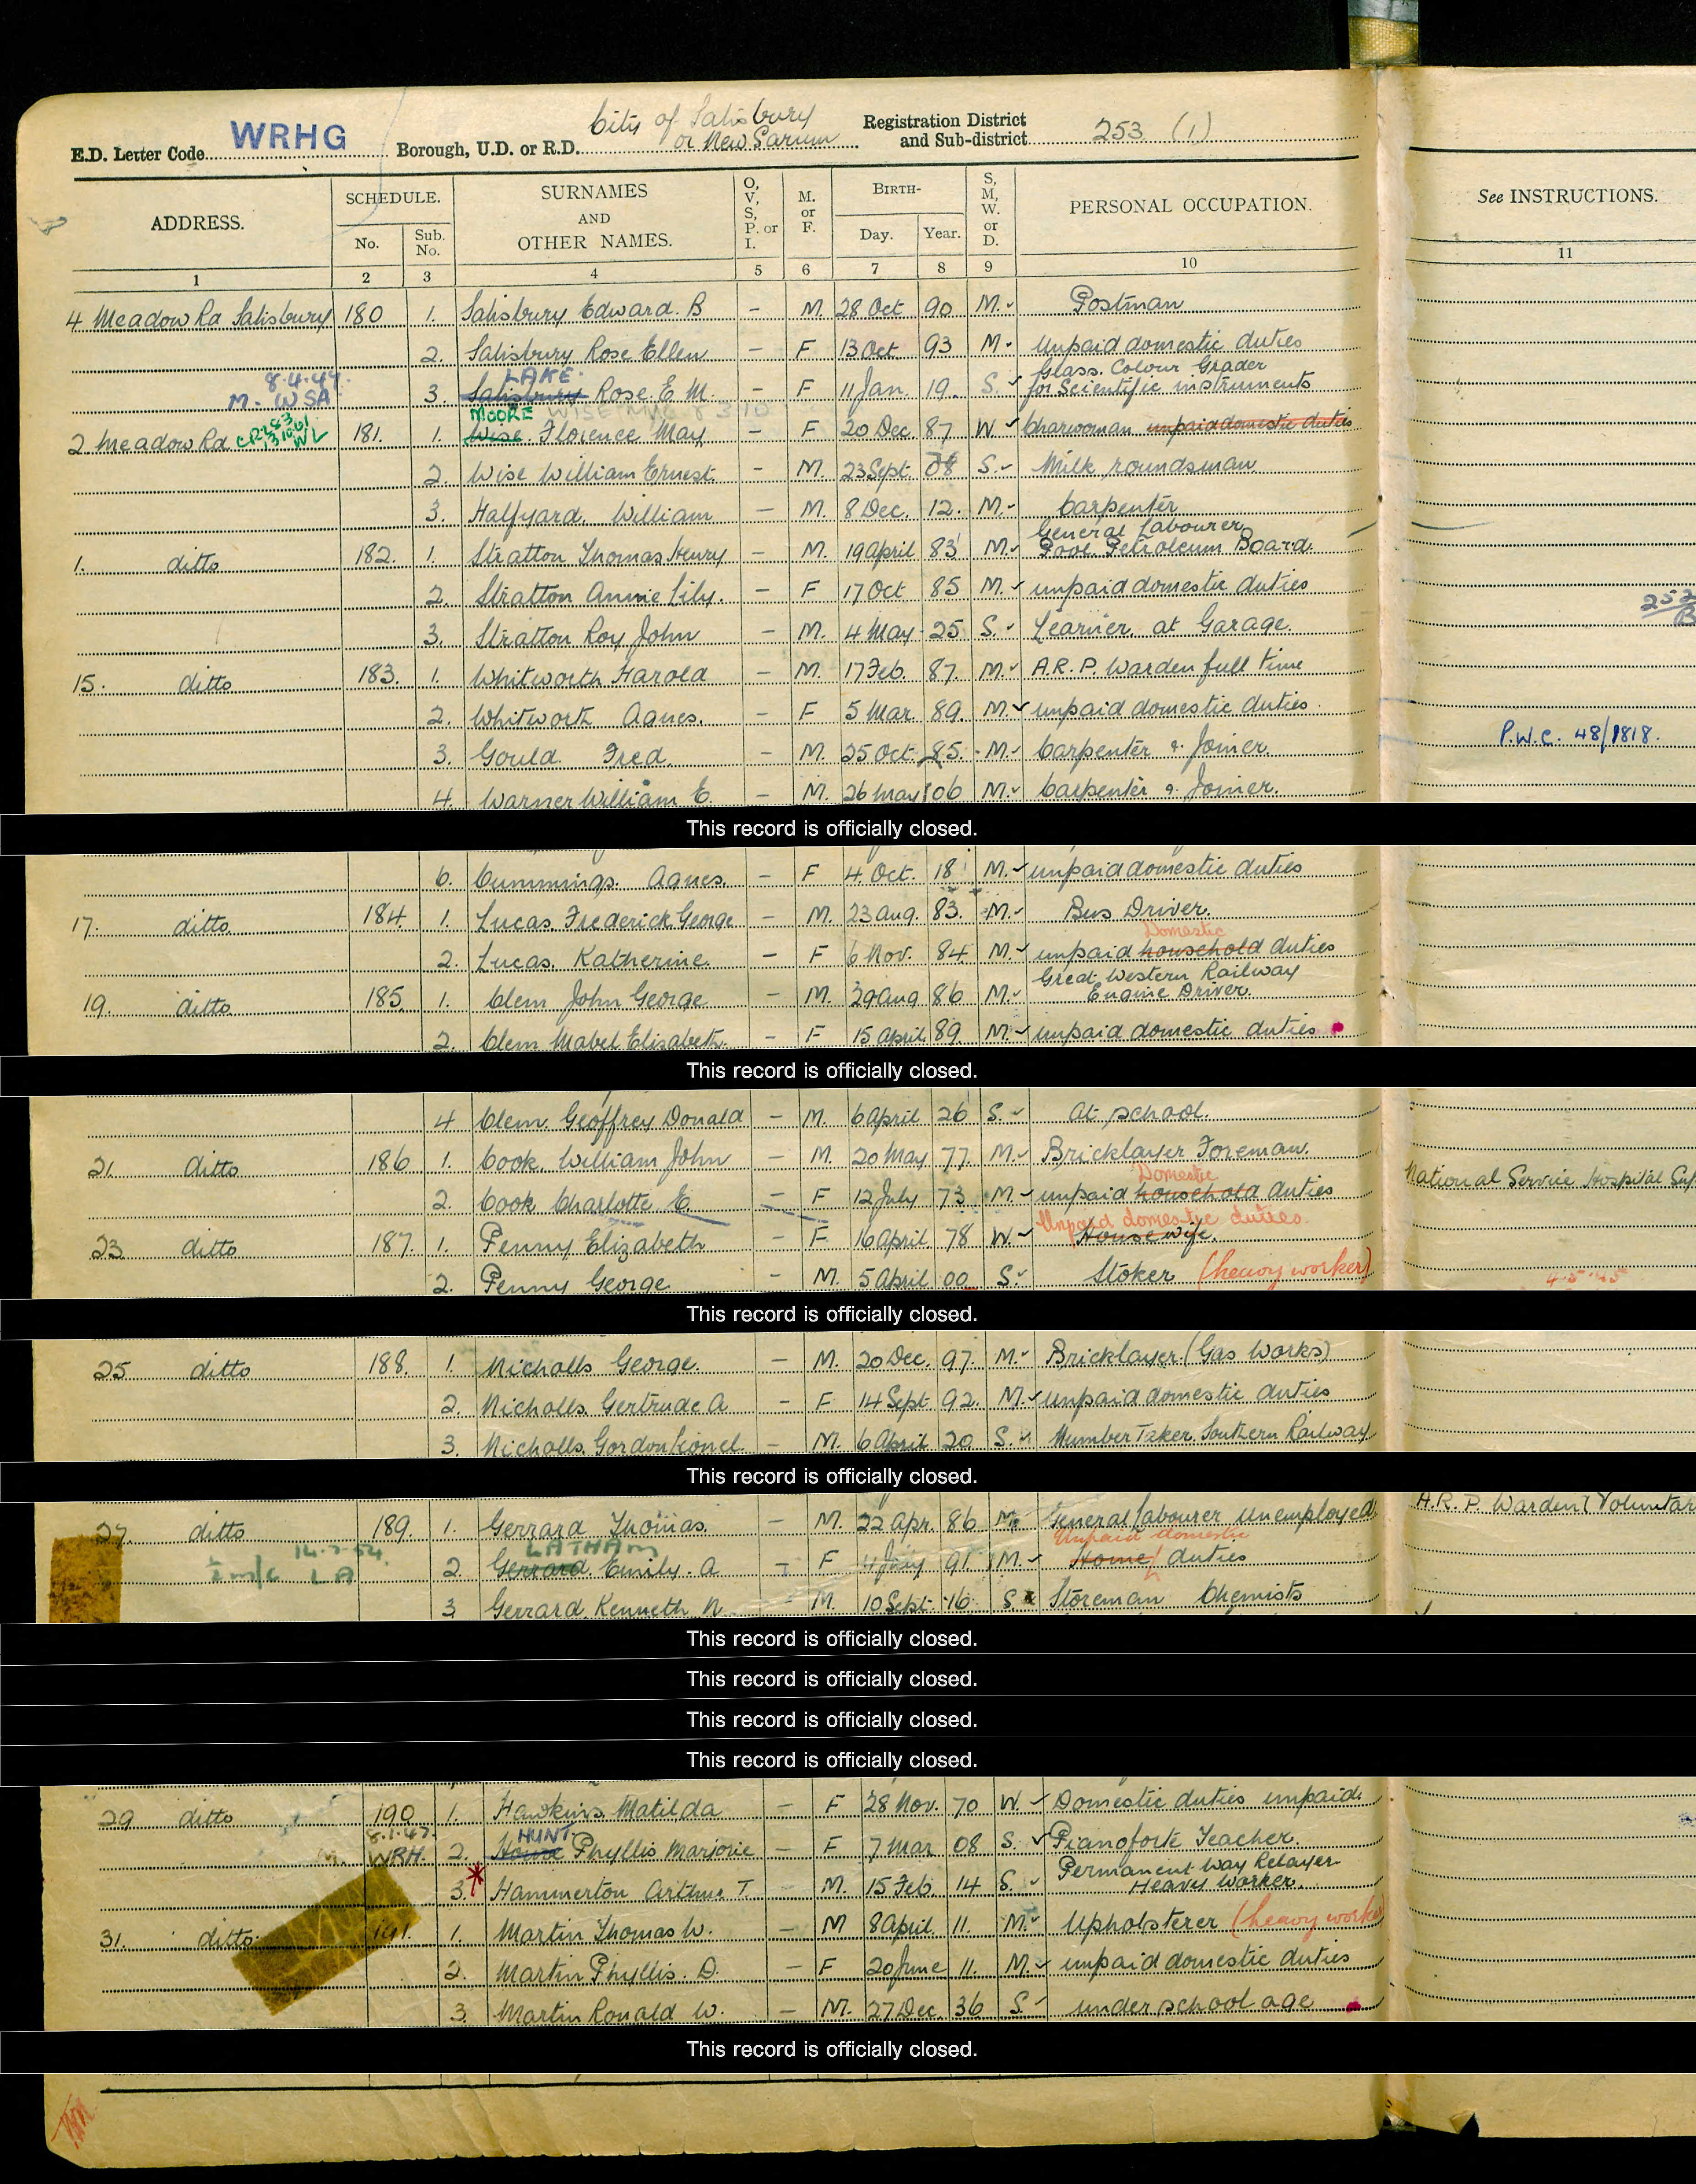 E.D. Letter Code WRHG Borough, U.D. or R.D. City of Salisbury or New Sarum Registration District and Sub-district 253 (1)
ADDRESS. SCHEDULE. No. Sub. No. SURNAMES AND OTHER NAMES. O, V, S, P. or I. M. or F. BIRTH- Day. Year. S, M, W. or D. PERSONAL OCCUPATION. See INSTRUCTIONS.
1 2 3 4 5 6 7 8 9 10 11
4 Meadow Rd Salisbury 180 1. Salisbury Edward. B – M. 28 Oct 90 M. Postman
2. Salisbury Rose Ellen – F 13 Oct 93 M. unpaid domestic duties
8.4.47. LAKE Glass Colour Grader
M. WSA 3. Salisbury Rose E. M. – F 11 Jan. 19. S. for Scientific instruments
MOORE WISE
2 Meadow Rd 181. 1. Wise Florence May – F 20 Dec 87 W Charwoman unpaid domestic duties
2. Wise William Ernest. – M. 23 Sept. 08 S. Milk roundsman
3. Halfyard. William – M. 8 Dec. 12. M. Carpenter
General Labourer
1. ditto 182. 1. Stratton Thomas Henry – M. 19 April 83 M. Pool Petroleum Board.
2. Stratton Annie Lily. – F 17 Oct 85 M. unpaid domestic duties
3. Stratton Roy John – M. 4 May 25 S. Learner at Garage.
15. ditto 183. 1. Whitworth Harold – M. 17 Feb. 87. M. A.R.P. Warden full time
2. Whitworth Agnes. – F 5 Mar 89. M. unpaid domestic duties.
3. Gould Fred. – M. 25 Oct. 85. M. Carpenter & Joiner. P.W.C. 48/1818.
4. Warner William E. – M. 26 May 06 M. Carpenter & Joiner.
This record is officially closed.
6. Cummings. Agnes. – F 4 Oct. 18 M. unpaid domestic duties
17. ditto 184. 1. Lucas Frederick George – M. 23 Aug. 83. M. Bus Driver.
Domestic
2. Lucas. Katherine. – F 6 Nov. 84 M. unpaid household duties
Great Western Railway
19. ditto 185. 1. Clem John George – M. 29 Aug 86 M. Engine Driver.
2. Clem Mabel Elizabeth. – F 15 April 89. M. unpaid domestic duties
This record is officially closed.
4 Clem. Geoffrey Donald – M. 6 April 26 S. At school.
21. ditto 186 1. Cook. William John – M. 20 May 77. M. Bricklayer Foreman.
Domestic
2. Cook Charlotte E. – F 12 July 73 M. unpaid household duties National Service Hospital Sup
Unpaid domestic duties
23 ditto 187. 1. Penny Elizabeth – F 16 April 78 W. Housewife.
2. Penny George – M. 5 April 00 S. Stoker (heavy worker) 4.5.45
This record is officially closed.
25 ditto 188. 1. Nicholls George. – M. 20 Dec. 97. M. Bricklayer (Gas Works)
2. Nicholls Gertrude A – F 14 Sept 92. M. unpaid domestic duties
3. Nicholls. Gordon Lionel – M. 6 April 20 S. Number Taker. Southern Railway
This record is officially closed.
27. ditto 189. 1. Gerrard Thomas. – M. 22 Apr. 86 M. General labourer unemployed A.R.P. Warden (Voluntar
14.7.54 LATHAM Unpaid domestic
LA 2. Gerrard. Emily. A – F 91. M. Home duties
3. Gerrard Kenneth N – M. 10 Sept. 16 S. Storeman Chemists
This record is officially closed.
This record is officially closed.
This record is officially closed.
This record is officially closed.
29 ditto 190 1. Hawkins Matilda – F 28 Nov. 70 W. Domestic duties unpaid.
8.1.47. HUNT
M. WRH. 2. Phyllis Marjorie – F 7 Mar 08 S. Pianoforte Teacher.
Permanent Way Relayer
3. Hammerton Arthur T. – M. 15 Feb. 14 S. Heavy Worker.
31. ditto 191. 1. Martin Thomas W. – M 8 April 11. M. Upholsterer (heavy worke
2. Martin Phyllis. D. – F 20 June 11. M. unpaid domestic duties
3. Martin Ronald W. – M. 27 Dec. 36 S. under school age
This record is officially closed.